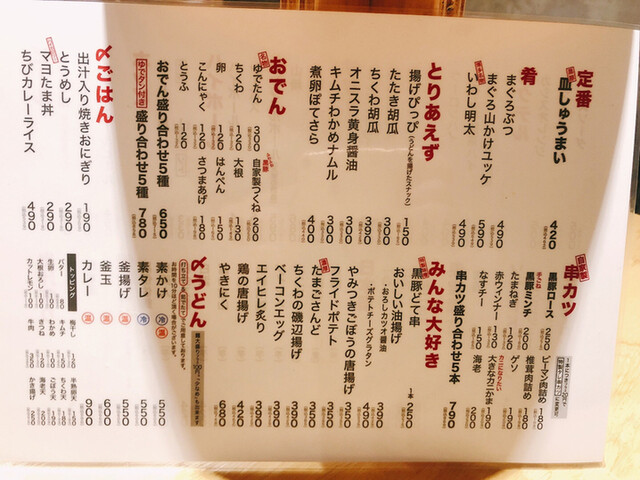 定番
皿しゅうまい 420
肴
まぐろぶつ 490
まぐろ山かけユッケ 590
いわし明太 490
とりあえず
揚げぴっぴ(うどんを揚げたスナック) 150
たたき胡瓜 300
ちくわ胡瓜 390
オニスラ黄身醤油 300
キムチわかめナムル 300
煮卵ぽてさら 400
おでん
名物
ゆでたん 300
自家製つくね 200
ちくわ 120
大根 130
卵 120
はんぺん 150
こんにゃく 120
さつまあげ 180
とうふ 120
おでん盛り合わせ5種 650
ゆでタン付き 盛り合わせ5種 780
〆ごはん
出汁入り焼きおにぎり 190
とうめし 290
マヨたま丼 290
ちびカレーライス 490
自家製
串カツ
黒豚ロース 250
黒豚ミンチ 200
たまねぎ 120
赤ウィンナー 130
なすチー 150
ピーマン肉詰め 180
椎茸肉詰め 180
ゲソ
大きなカニかま 190
海老
串カツ盛り合わせ5本 790
みんな大好き
黒豚どて串 1本 250
おいしい油揚げ
・おろしカツオ醤油 350
・ポテトチーズグラタン
やみつきごぼうの唐揚げ
フライドポテト 350
たまごさんど 350
ちくわの磯辺揚げ
ベーコンエッグ 390
エイヒレ炙り 390
鶏の唐揚げ 420
やきにく 680
〆うどん
素かけ 温 冷 550
素タレ 冷 550
釜揚げ 温 550
釜玉 温 600
カレー 温 900
トッピング
バター 80
生卵
大根おろし
カットレモン
梅干し
キムチ
わかめ
きつね
牛肉
半熟卵天
ちくわ天
ごぼう天
海老天
かき揚げ